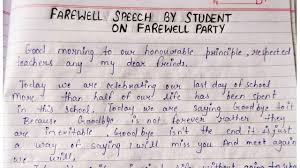 FAREWELL SPEECH BY STUDENT
ON FAREWELL PARTY
Good morning to our honourable principle, respected
teachers any my dear freinds.
Today we are celebrating our last day of school
more than half of our life has been spent
in this school. Today we are saying Goodbye to it
Because Goodbye is not forever rather they
are inevitable. Goodbye isn't the end it is just
a way of saying I will miss you and meet again
we will.